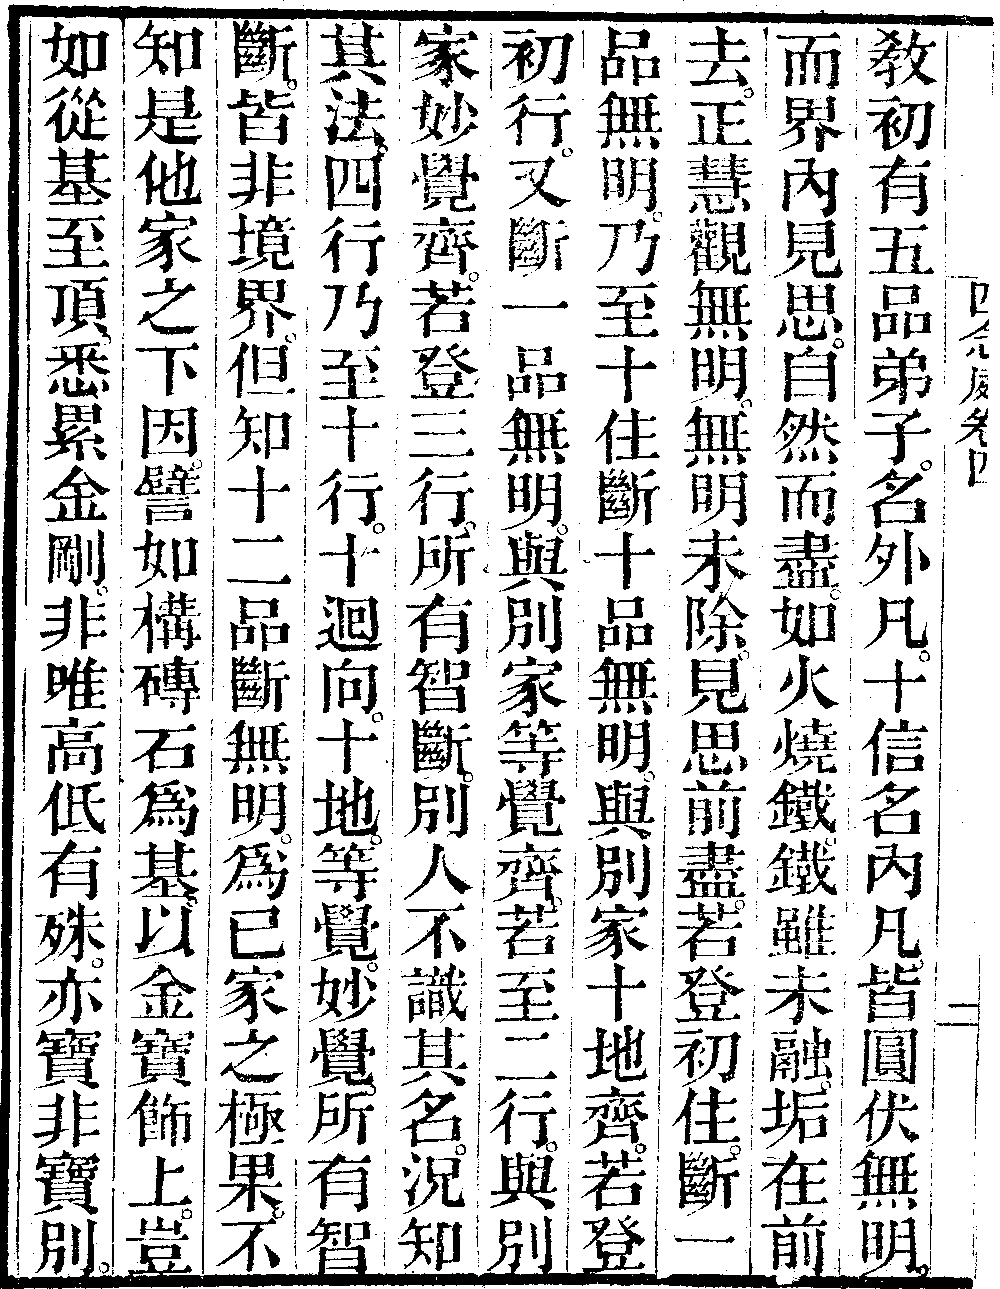 四念處卷四
二
教初有五品弟子。名外凡。十信名內凡。皆圓伏無明。
而界內見思。自然而盡。如火燒鐵。鐵雖未融。垢在前
去。正慧觀無明。無明未除。見思前盡。若登初住。斷一
品無明。乃至十住斷十品無明。與別家十地齊。若登
初行。又斷一品無明。與別家等覺齊。若至二行。與別
家妙覺齊。若登三行。所有智斷。別人不識其名。況知
其法。四行乃至十行。十迴向。十地。等覺。妙覺。所有智
斷。皆非境界。但知十二品斷無明。爲己家之極果。不
知是他家之下因。譬如構磚石爲基。以金寶飾上。豈
如從基至頂。悉累金剛。非唯高低有殊。亦寶非寶別。